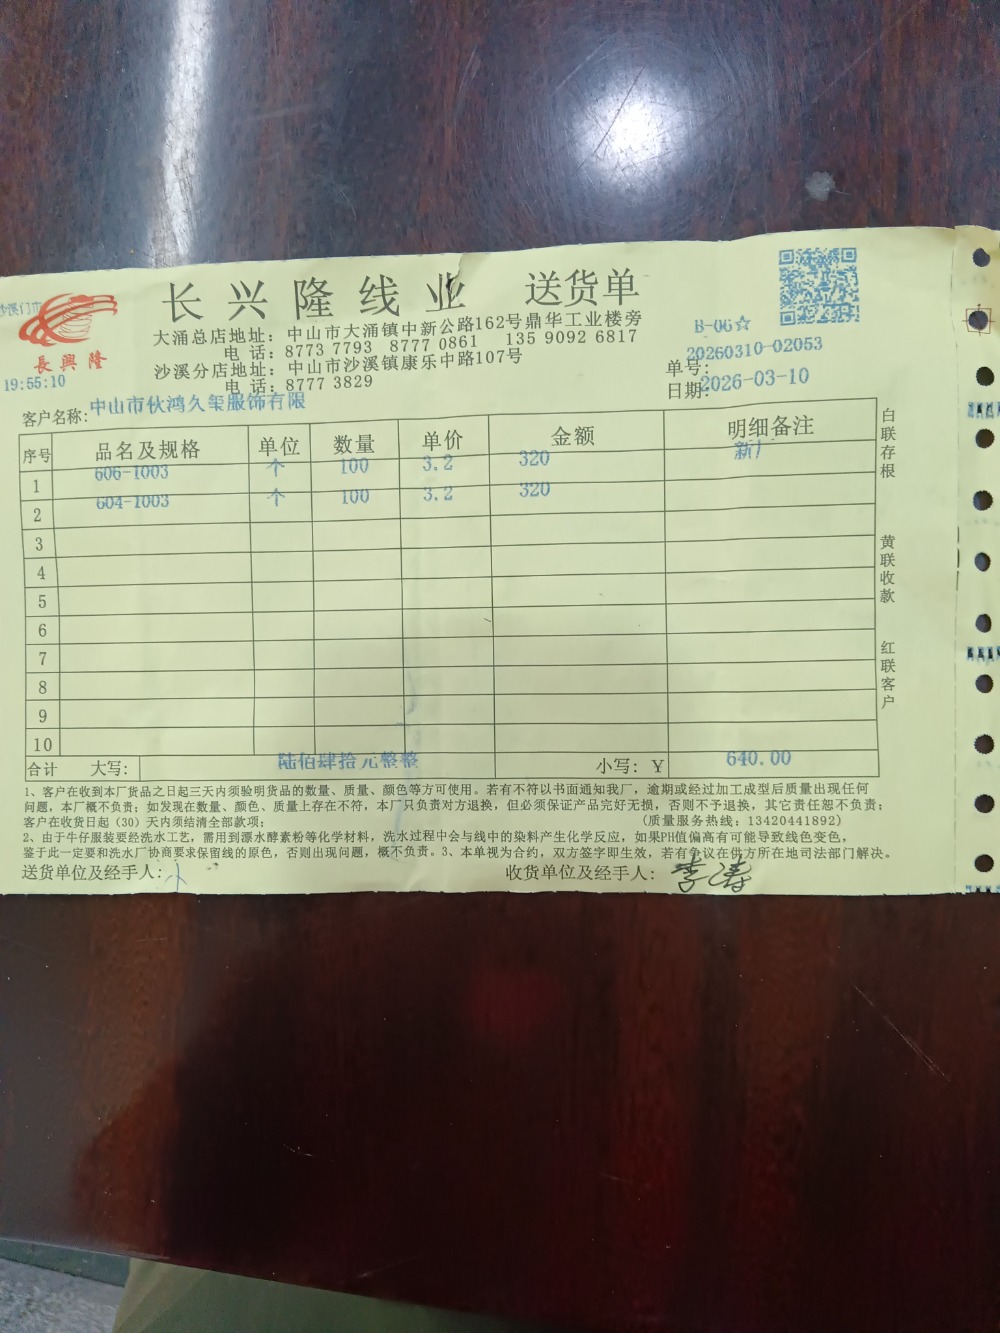 长兴隆线业 送货单
大涌总店地址：中山市大涌镇中新公路162号鼎华工业楼旁
电 话：8773 7793 8777 0861 135 9092 6817
沙溪分店地址：中山市沙溪镇康乐中路107号
电 话：8777 3829
長興隆
19:55:10
B-06☆
单号：20260310-02053
日期：2026-03-10
客户名称：中山市伙鸿久玺服饰有限
序号 品名及规格 单位 数量 单价 金额 明细备注
1 606-1003 个 100 3.2 320
2 604-1003 个 100 3.2 320
3
4
5
6
7
8
9
10
合计 大写： 陆佰肆拾元整整 小写：￥ 640.00
白联存根
黄联收款
红联客户
1、客户在收到本厂货品之日起三天内须验明货品的数量、质量、颜色等方可使用。若有不符以书面通知我厂，逾期或经过加工成型后质量出现任何
问题，本厂概不负责；如发现在数量、颜色、质量上存在不符，本厂只负责对方退换，但必须保证产品完好无损，否则不予退换，其它责任恕不负责；
客户在收货日起（30）天内须结清全部款项；（质量服务热线：13420441892）
2、由于牛仔服装要经洗水工艺，需用到漂水酵素粉等化学材料，洗水过程中会与线中的染料产生化学反应，如果PH值偏高有可能导致线色变色，
鉴于此一定要和洗水厂协商要求保留线的原色，否则出现问题，概不负责。3、本单视为合约，双方签字即生效，若有争议在供方所在地司法部门解决。
送货单位及经手人： 收货单位及经手人：李涛